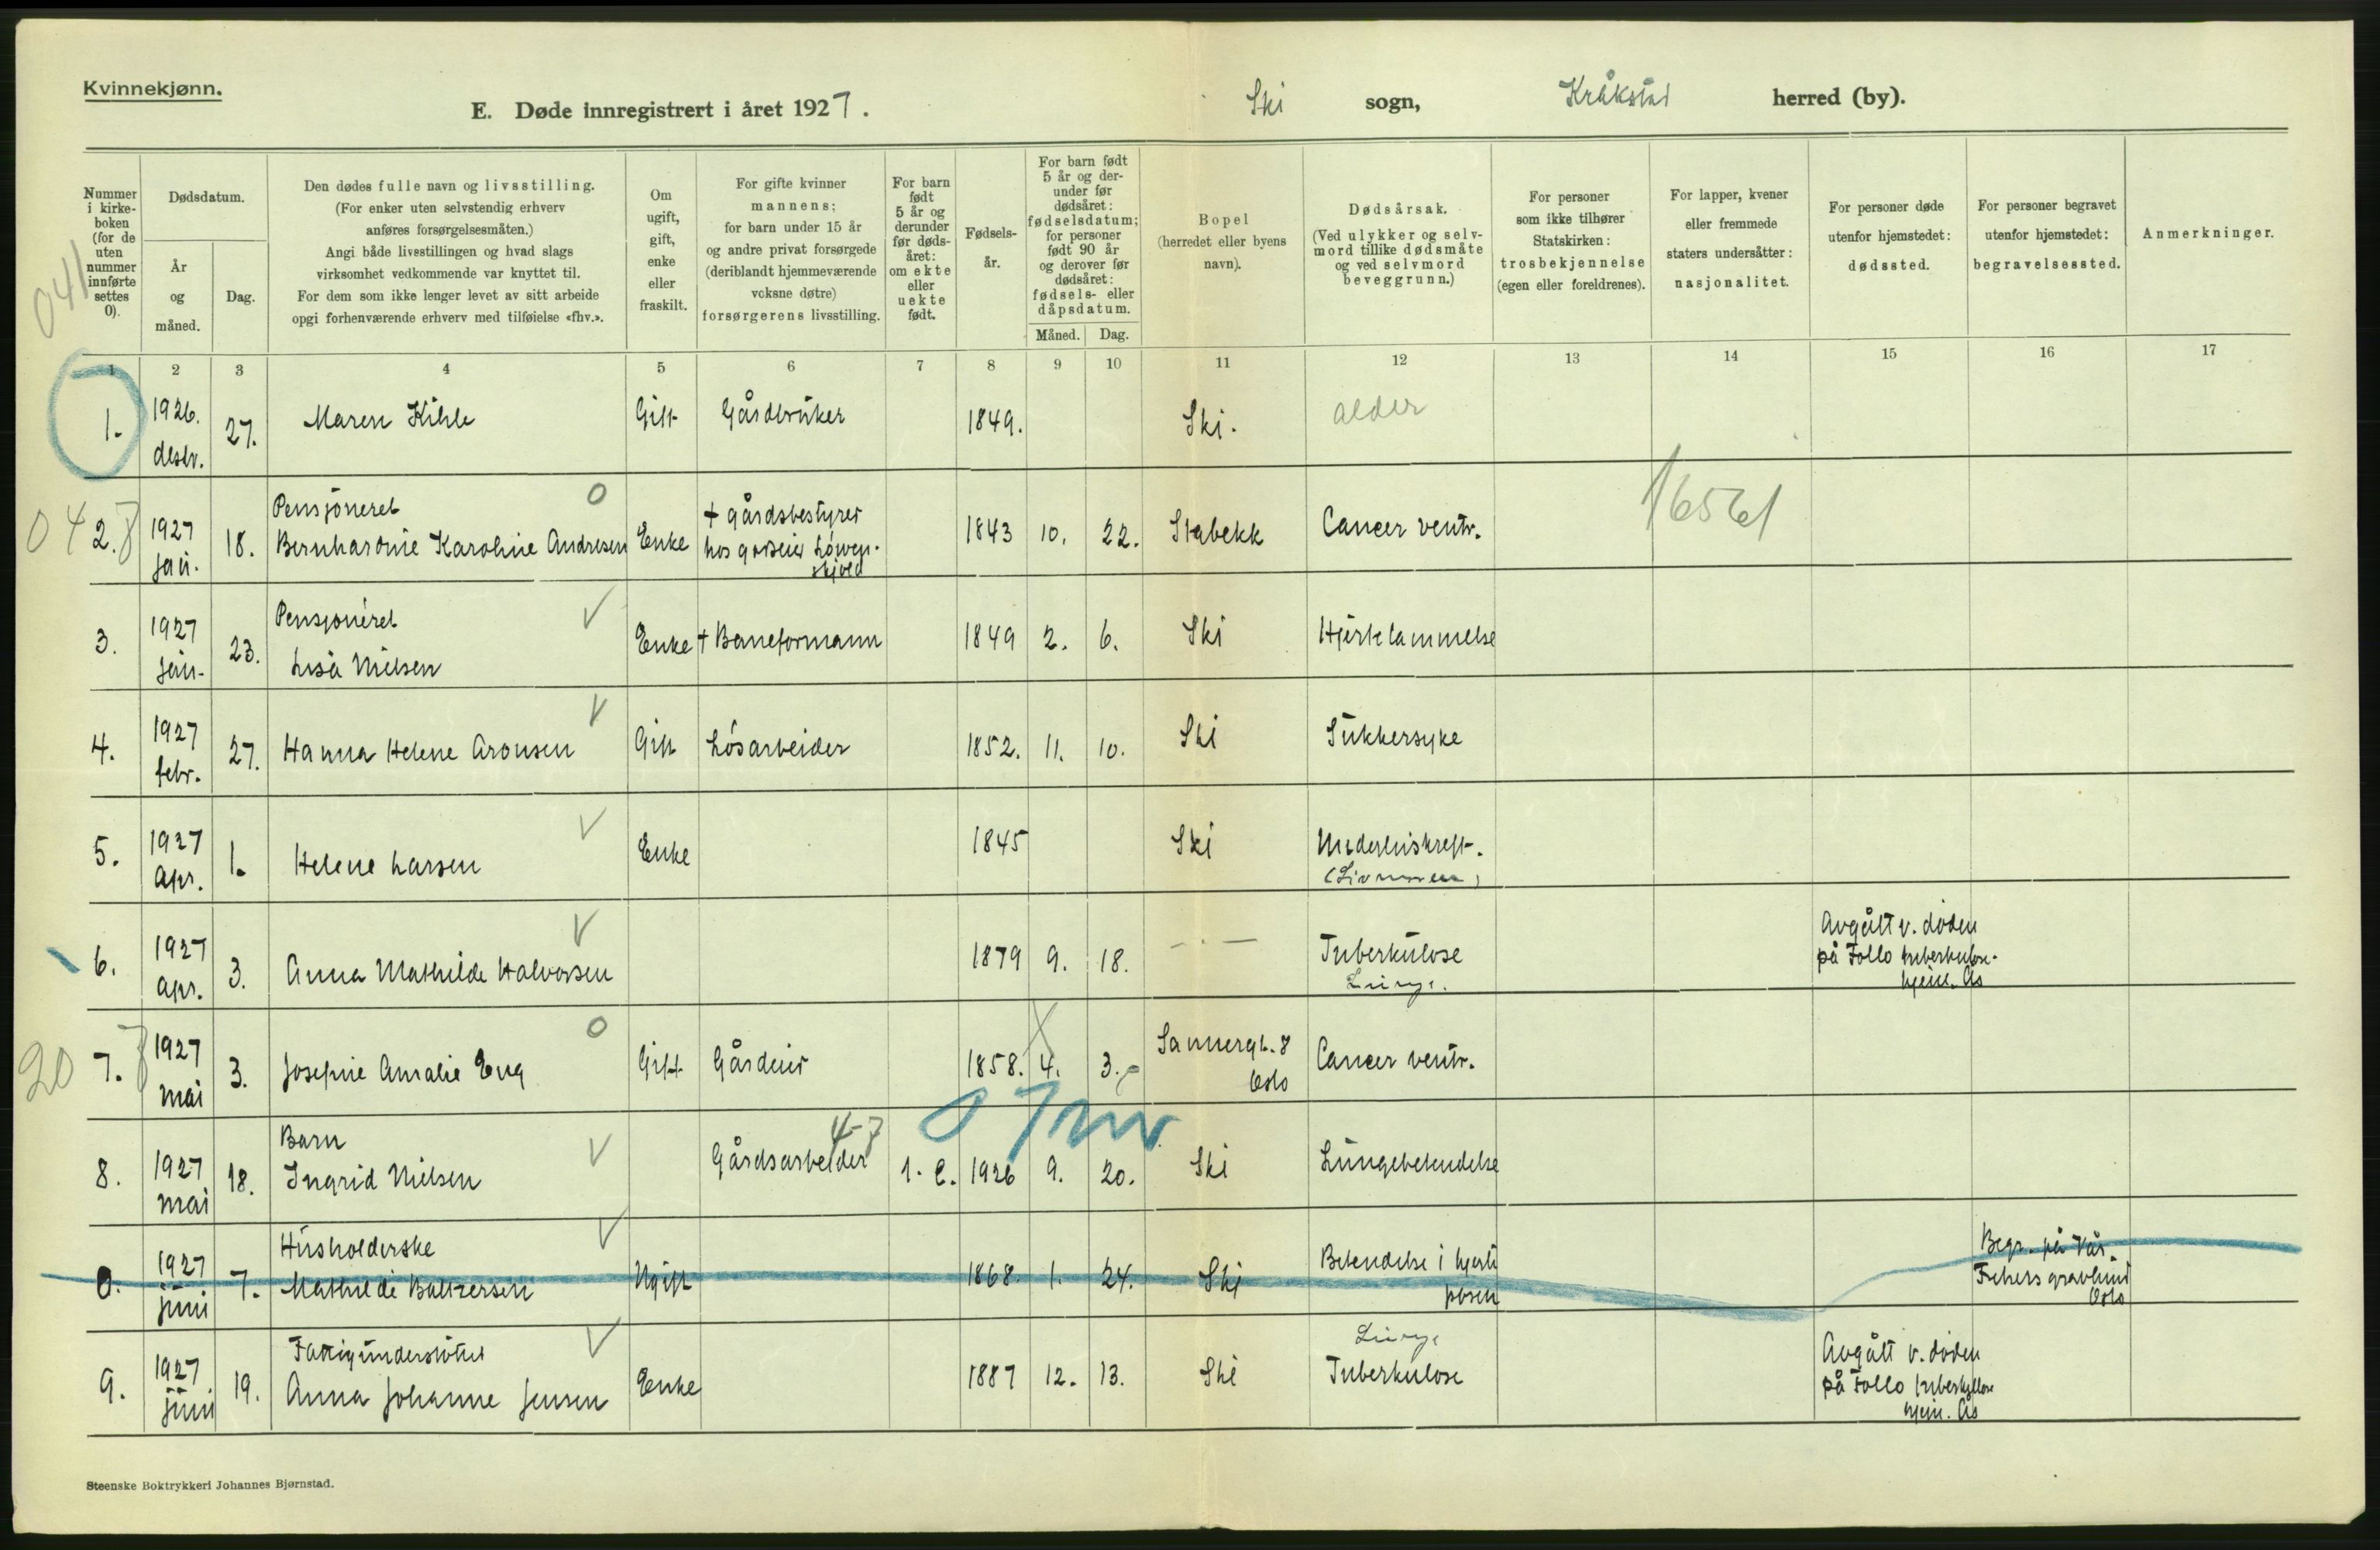 Kvinnekjønn.
E. Døde innregistrert i året 1927. Ski sogn, Kråkstad herred (by).
Nummer i kirke-boken (for de uten nummer innførte settes 0).
Dødsdatum.
År og måned.
Dag.
Den dødes fulle navn og livsstilling.
(For enker uten selvstendig erhverv
anføres forsørgelsesmåten.)
Angi både livsstillingen og hvad slags
virksomhet vedkommende var knyttet til.
For dem som ikke lenger levet av sitt arbeide
opgi forhenværende erhverv med tilføielse «fhv.».
Om
ugift,
gift,
enke
eller
fraskilt.
For gifte kvinner
mannens;
for barn under 15 år
og andre privat forsørgede
(deriblandt hjemmeværende
voksne døtre)
forsørgerens livsstilling.
For barn
født
5 år og
derunder
før døds-
året:
om ekte
eller
uekte
født.
Fødsels-
år.
For barn født
5 år og der-
under før
dødsåret:
fødselsdatum;
for personer
født 90 år
og derover før
dødsåret:
fødsels- eller
dåpsdatum.
Måned. Dag.
Bopel
(herredet eller byens
navn).
Dødsårsak.
(Ved ulykker og selv-
mord tillike dødsmåte
og ved selvmord
beveggrunn.)
For personer
som ikke tilhører
Statskirken:
trosbekjennelse
(egen eller foreldrenes).
For lapper, kvener
eller fremmede
staters undersåtter:
nasjonalitet.
For personer døde
utenfor hjemstedet:
dødssted.
For personer begravet
utenfor hjemstedet:
begravelsessted.
Anmerkninger.
041
1 2 3 4 5 6 7 8 9 10 11 12 13 14 15 16 17
1. 1926. desbr. 27. Maren Kihle Gift Gårdbruker 1849. Ski. alder
04 2. 7 1927 jan. 18. Pensjoneret O
Bernhardine Karoline Andresen Enke + gårdsbestyrer
hos godseier Løwen-
skjold 1843 10. 22. Stabekk Cancer ventr. 16561
3. 1927 jan. 23. Pensjoneret V
Lisa Nielsen Enke + Baneformann 1849 2. 6. Ski Hjertelammelse
4. 1927 febr. 27. Hanna Helene Aronsen V Gift Løsarbeider 1852. 11. 10. Ski Sukkersyke
5. 1927 Apr. 1. Helene Larsen V Enke 1845 Ski Underlivskreft.
6. 1927 Apr. 3. Anna Mathilde Halvorsen V 1879 9. 18. - . - Tuberkulose
Lunge.
Avgått v. døden
på Follo tuberkulose-
hjem. Ås
20 7. 7 1927 mai 3. Josefine Amalie Eng O Gift Gårdeier 1858. 4. 3. Sannergt. 8
Oslo Cancer ventr.
8. 1927 mai 18. Barn V
Ingrid Nielsen Gårdsarbeider 4-7 1. e. 1926 9. 20. Ski Lungebetendelse
0. 1927 juni 7. Husholderske V
Mathilde Baltzersen Ugift 1868. 1. 24. Ski Betendelse i hjerte
posen
Begr. på Vår
Frelsers gravlund
Oslo
9. 1927 juni 19. Fattigunderstøttet V
Anna Johanne Jensen Enke 1887 12. 13. Ski Lunge
Tuberkulose
Avgått v. døden
på Follo tuberkulose
hjem. Ås
Steenske Boktrykkeri Johannes Bjørnstad.